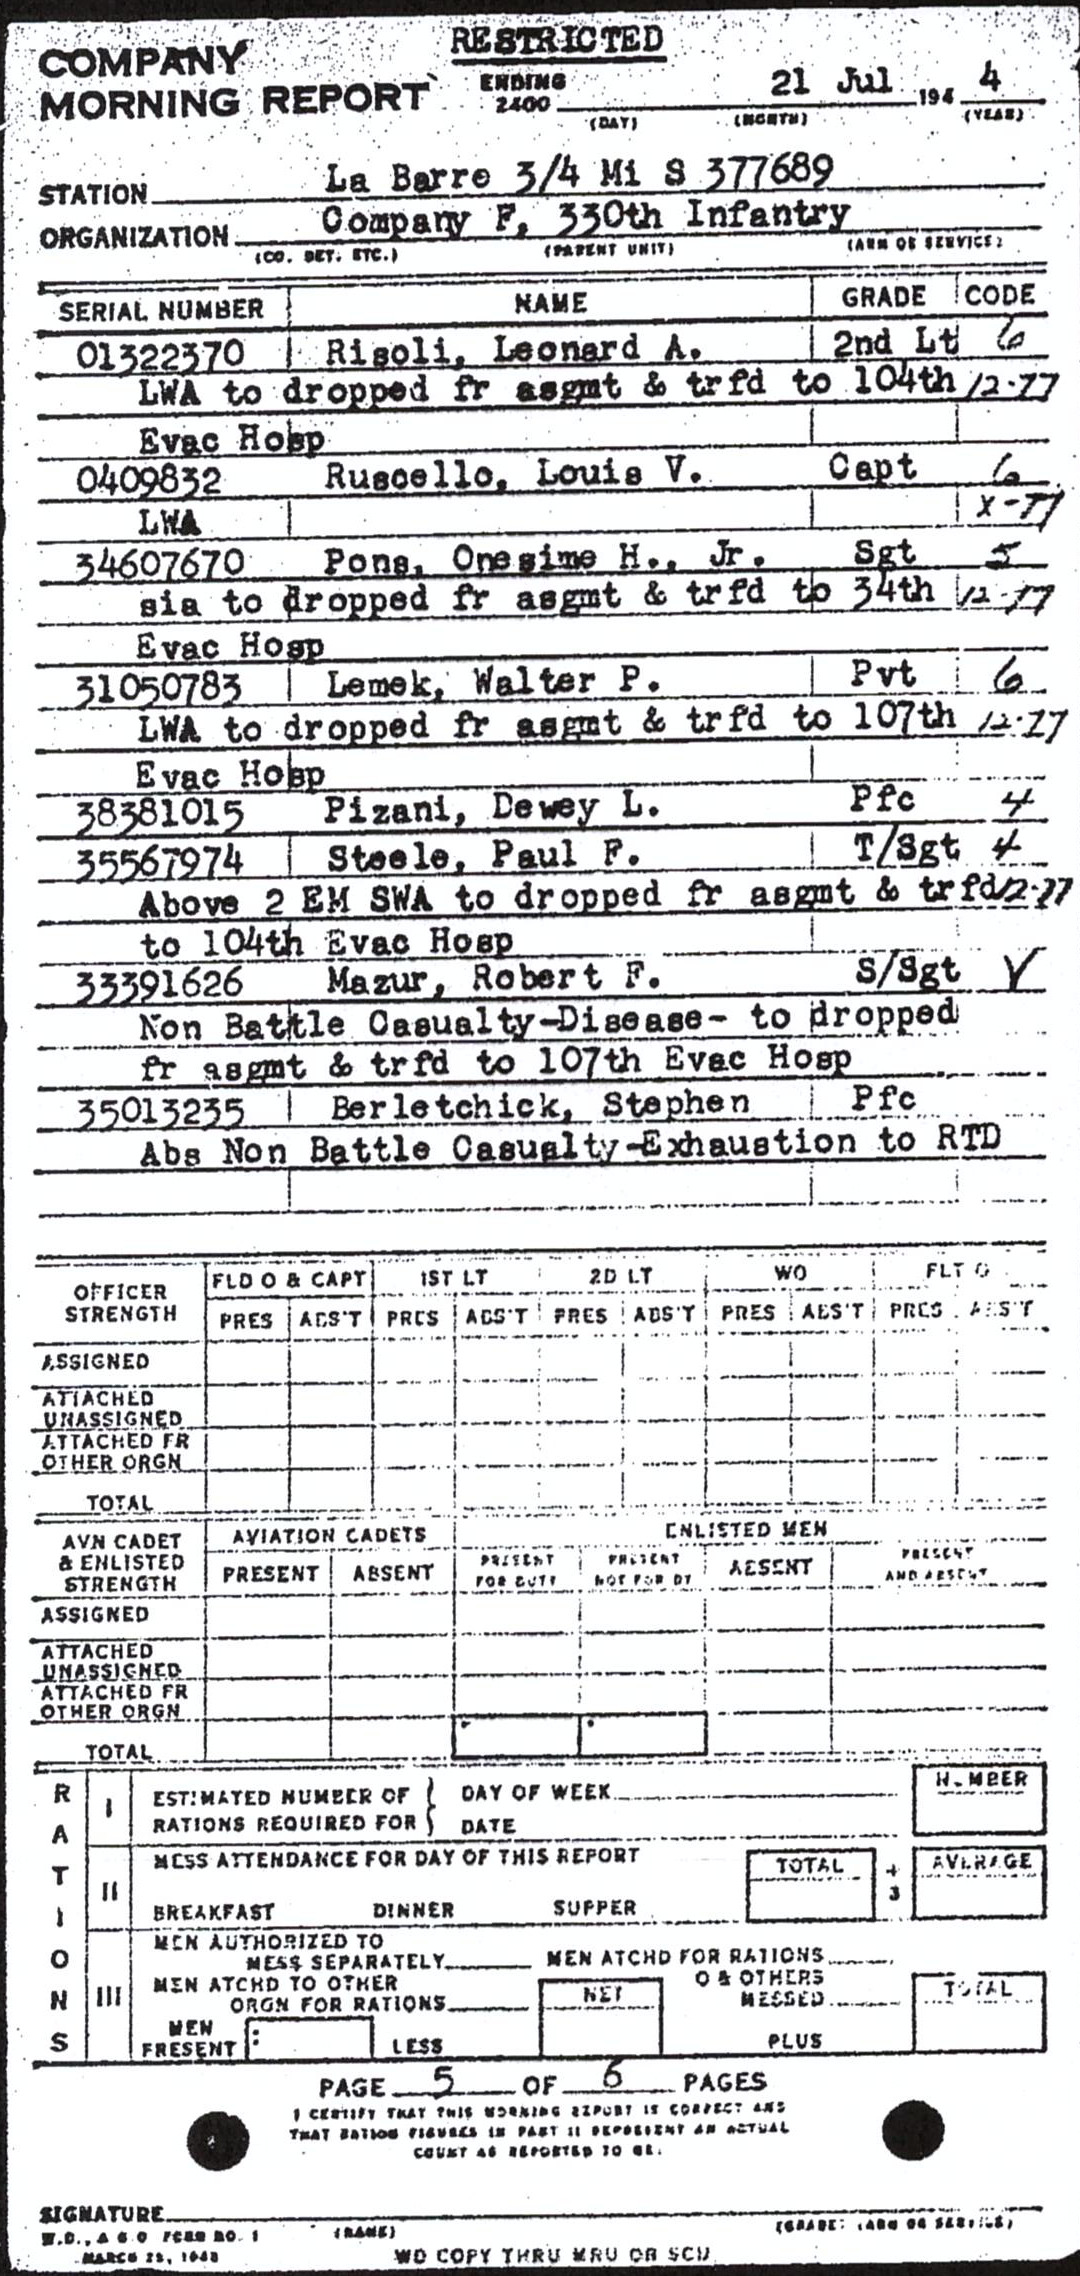 RESTRICTED
COMPANY
MORNING REPORT
ENDING
2400 21 Jul 194 4
(DAY) (MONTH) (YEAR)
STATION La Barre 3/4 Mi S 377689
ORGANIZATION Company F, 330th Infantry
(CO. DET. ETC.) (PARENT UNIT) (ARM OR SERVICE)
SERIAL NUMBER NAME GRADE CODE
01322370 Risoli, Leonard A. 2nd Lt 6
LWA to dropped fr asgmt & trfd to 104th 12-77
Evac Hosp
0409832 Ruscello, Louis V. Capt 6
LWA X-77
34607670 Pons, Onesime H., Jr. Sgt 5
sia to dropped fr asgmt & trfd to 34th 12-77
Evac Hosp
31050783 Lemek, Walter P. Pvt 6
LWA to dropped fr asgmt & trfd to 107th 12-77
Evac Hosp
38381015 Pizani, Dewey L. Pfc 4
35567974 Steele, Paul F. T/Sgt 4
Above 2 EM SWA to dropped fr asgmt & trfd 12-77
to 104th Evac Hosp
33391626 Mazur, Robert F. S/Sgt V
Non Battle Casualty-Disease- to dropped
fr asgmt & trfd to 107th Evac Hosp
35013235 Berletchick, Stephen Pfc
Abs Non Battle Casualty-Exhaustion to RTD
OFFICER STRENGTH FLD O & CAPT 1ST LT 2D LT WO FLT O
PRES ABS'T PRES ABS'T PRES ABS'T PRES ABS'T PRES ABS'T
ASSIGNED
ATTACHED
UNASSIGNED
ATTACHED FR
OTHER ORGN
TOTAL
AVN CADET
& ENLISTED
STRENGTH
AVIATION CADETS ENLISTED MEN
PRESENT ABSENT PRESENT FOR DUTY PRESENT NOT FOR DY ABSENT PRESENT AND ABSENT
ASSIGNED
ATTACHED
UNASSIGNED
ATTACHED FR
OTHER ORGN
TOTAL
RATIONS
I ESTIMATED NUMBER OF DAY OF WEEK NUMBER
RATIONS REQUIRED FOR DATE
II MESS ATTENDANCE FOR DAY OF THIS REPORT TOTAL ÷ 3 AVERAGE
BREAKFAST DINNER SUPPER
III MEN AUTHORIZED TO
MESS SEPARATELY MEN ATCHD FOR RATIONS
MEN ATCHD TO OTHER
ORGN FOR RATIONS NET O & OTHERS
MESSED TOTAL
MEN
PRESENT LESS PLUS
PAGE 5 OF 6 PAGES
I CERTIFY THAT THIS MORNING REPORT IS CORRECT AND
THAT RATION FIGURES IN PART II REPRESENT AN ACTUAL
COUNT AS REPORTED TO ME.
SIGNATURE
(NAME) (GRADE: (ARM OR SERVICE)
W.D., A G O FORM NO. 1
MARCH 25, 1943
WD COPY THRU MRU OR SCU